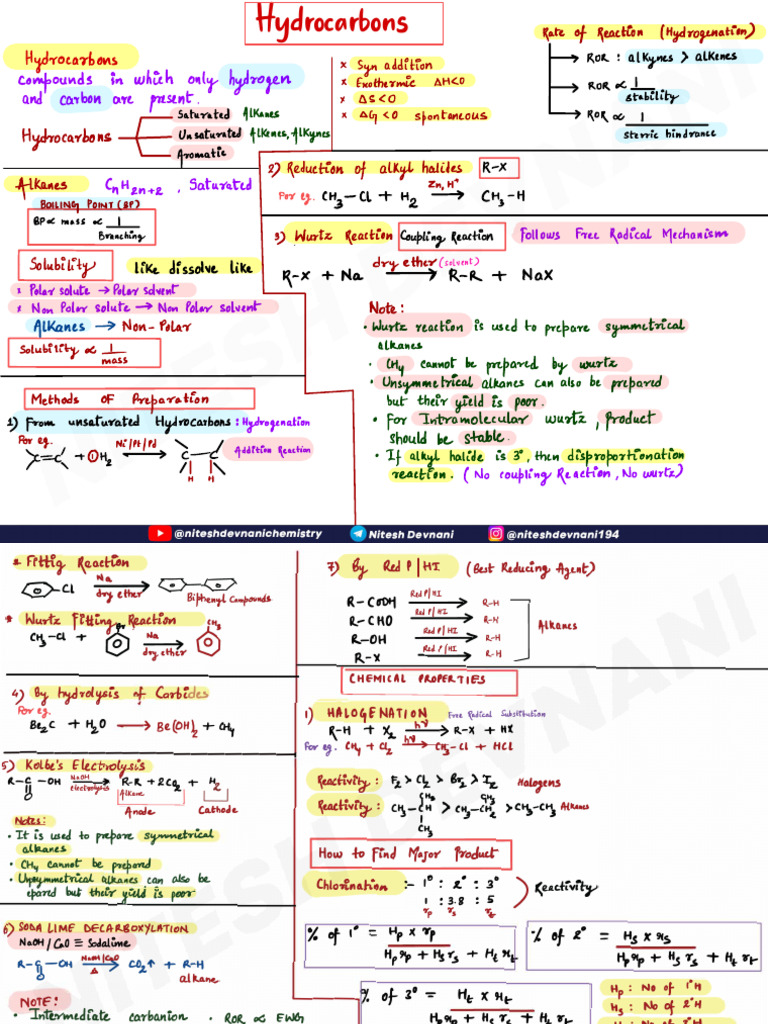 Hydrocarbons
Hydrocarbons
compounds in which only hydrogen
and carbon are present.
Hydrocarbons
Saturated Alkanes
Unsaturated Alkenes, Alkynes
Aromatic
× Syn addition
× Exothermic ΔH<0
× ΔS<0
× ΔG<0 spontaneous
Rate of Reaction (Hydrogenation)
ROR : alkynes > alkenes
ROR ∝ 1/stability
ROR ∝ 1/sterric hindrance
Alkanes CnH2n+2, Saturated
BOILING POINT (BP)
BP ∝ mass ∝ 1/Branching
Solubility like dissolve like
× Polar solute → Polar solvent
× Non Polar solute → Non Polar solvent
Alkanes → Non-Polar
Solubility ∝ 1/mass
Methods of Preparation
1) From unsaturated Hydrocarbons : Hydrogenation
For eg.
C=C + ① H2 Ni/Pt/Pd C-C Addition Reaction
H H
2) Reduction of alkyl halides R-X
For eg. CH3-Cl + H2 Zn, H+ → CH3-H
3) Wurtz Reaction Coupling Reaction Follows Free Radical Mechanism
R-X + Na dry ether (solvent) → R-R + NaX
Note:
• Wurtz reaction is used to prepare symmetrical
alkanes
• CH4 cannot be prepared by wurtz
• Unsymmetrical alkanes can also be prepared
but their yield is poor.
• For Intramolecular wurtz, Product
should be stable.
• If alkyl halide is 3°, then disproportionation
reaction. (No coupling Reaction, No wurtz)
@niteshdevnanichemistry Nitesh Devnani @niteshdevnani194
* Fittig Reaction
Cl Na dry ether → Biphenyl Compounds
* Wurtz Fitting Reaction
CH3-Cl + Br Na dry ether → CH3
4) By hydrolysis of Carbides
For eg.
Be2C + H2O → Be(OH)2 + CH4
5) Kolbe's Electrolysis
R-C-OH NaOH electrolysis → R-R + 2CO2 + H2
O
Alkane
Anode Cathode
Notes:
• It is used to prepare symmetrical
alkanes
• CH4 cannot be prepared
• Unsymmetrical alkanes can also be
epared but their yield is poor
6) SODA LIME DECARBOXYLATION
NaOH/CaO ≡ Sodalime
R-C-OH NaOH/CaO Δ → CO2↑ + R-H
O
alkane
NOTE:
• Intermediate carbanion • ROR ∝ EWG
7) By Red P/HI (Best Reducing Agent)
R-COOH Red P/HI → R-H
R-CHO Red P/HI → R-H
R-OH Red P/HI → R-H
R-X Red P/HI → R-H
Alkanes
CHEMICAL PROPERTIES
1) HALOGENATION Free Radical Substitution
R-H + X2 hν → R-X + HX
For eg. CH4 + Cl2 hν → CH3-Cl + HCl
Reactivity : F2 > Cl2 > Br2 > I2 Halogens
CH3 CH3
Reactivity : CH3-CH > CH3-CH2 > CH3-CH3 Alkanes
CH3
How to Find Major Product
Chlorination :- 1° : 2° : 3° Reactivity
1 : 3.8 : 5
rp rs rt
% of 1° = Hp x rp / Hp rp + Hs rs + Ht rt
% of 2° = Hs x rs / Hp rp + Hs rs + Ht rt
% of 3° = Ht x rt / Hp rp + Hs rs + Ht rt
Hp : No of 1°H
Hs : No of 2°H
NITESH DEVNANI
NITESH DEVNANI